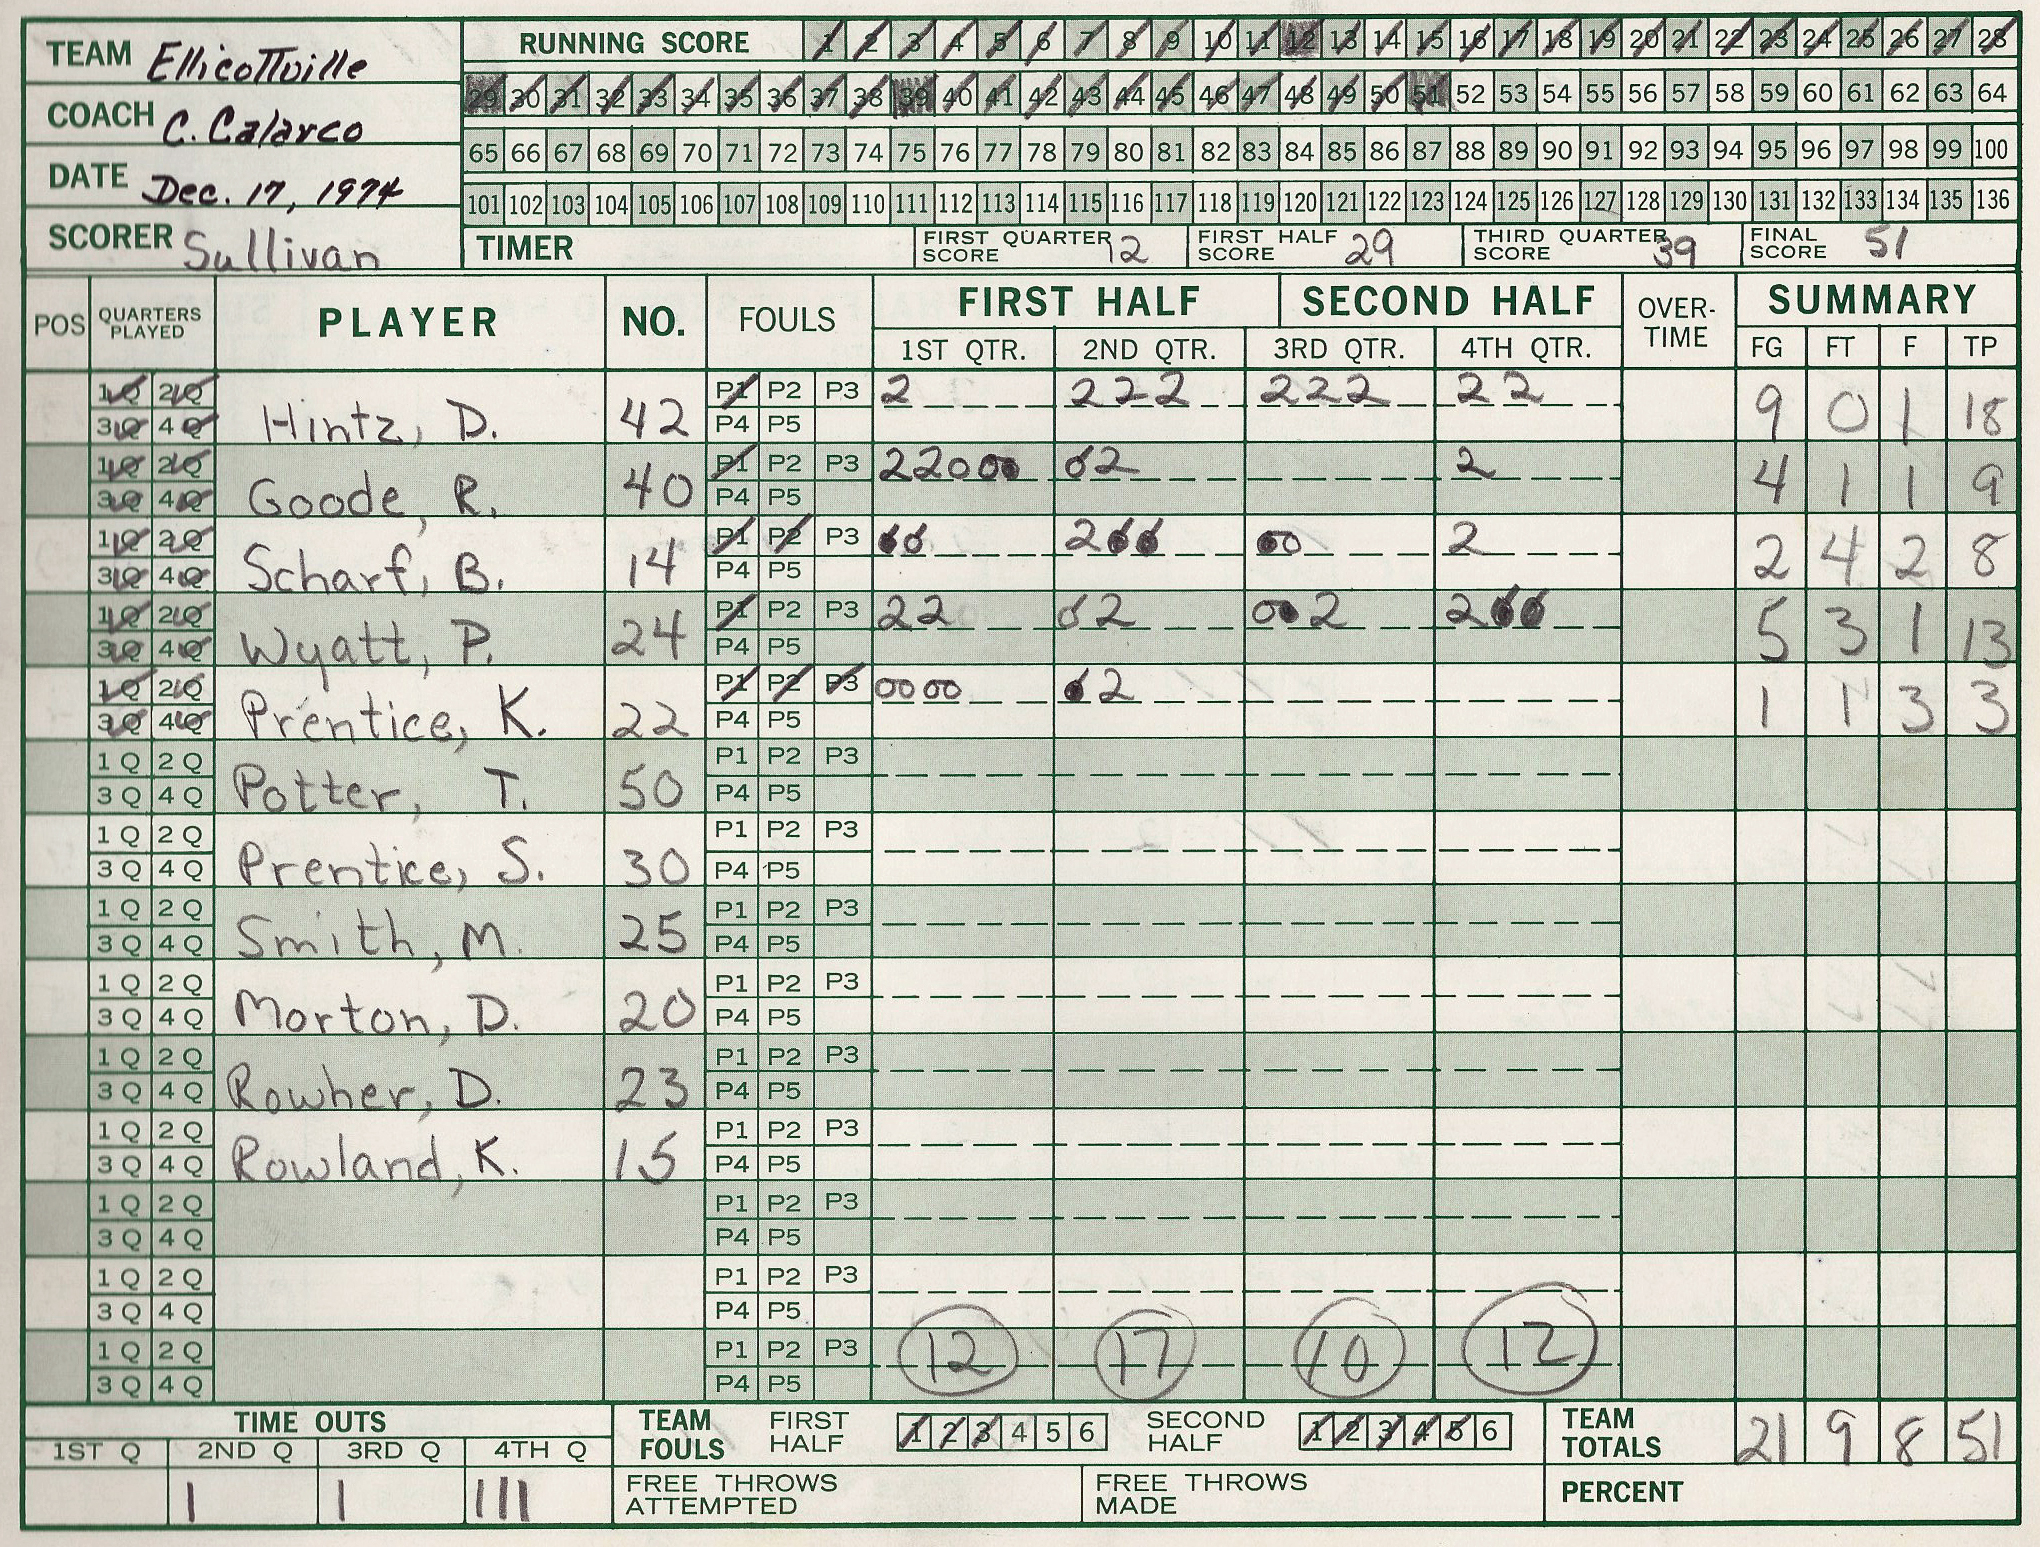 TEAM Ellicottville
COACH C. Calarco
DATE Dec. 17, 1974
SCORER Sullivan
RUNNING SCORE 1 2 3 4 5 6 7 8 9 10 11 12 13 14 15 16 17 18 19 20 21 22 23 24 25 26 27 28
29 30 31 32 33 34 35 36 37 38 39 40 41 42 43 44 45 46 47 48 49 50 51 52 53 54 55 56 57 58 59 60 61 62 63 64
65 66 67 68 69 70 71 72 73 74 75 76 77 78 79 80 81 82 83 84 85 86 87 88 89 90 91 92 93 94 95 96 97 98 99 100
101 102 103 104 105 106 107 108 109 110 111 112 113 114 115 116 117 118 119 120 121 122 123 124 125 126 127 128 129 130 131 132 133 134 135 136
TIMER FIRST QUARTER SCORE 12 FIRST HALF SCORE 29 THIRD QUARTER SCORE 39 FINAL SCORE 51
POS QUARTERS PLAYED PLAYER NO. FOULS FIRST HALF SECOND HALF OVER-TIME SUMMARY
1ST QTR. 2ND QTR. 3RD QTR. 4TH QTR. FG FT F TP
1Q 2Q P1 P2 P3 2 222 222 22
3Q 4Q Hintz, D. 42 P4 P5 9 0 1 18
1Q 2Q P1 P2 P3 22000 02 2
3Q 4Q Goode, R. 40 P4 P5 4 1 1 9
1Q 2Q P1 P2 P3 00 200 00 2
3Q 4Q Scharf, B. 14 P4 P5 2 4 2 8
1Q 2Q P1 P2 P3 22 02 002 200
3Q 4Q Wyatt, P. 24 P4 P5 5 3 1 13
1Q 2Q P1 P2 P3 0000 02
3Q 4Q Prentice, K. 22 P4 P5 1 1 3 3
1Q 2Q P1 P2 P3
3Q 4Q Potter, T. 50 P4 P5
1Q 2Q P1 P2 P3
3Q 4Q Prentice, S. 30 P4 P5
1Q 2Q P1 P2 P3
3Q 4Q Smith, M. 25 P4 P5
1Q 2Q P1 P2 P3
3Q 4Q Morton, D. 20 P4 P5
1Q 2Q P1 P2 P3
3Q 4Q Rowher, D. 23 P4 P5
1Q 2Q P1 P2 P3
3Q 4Q Rowland, K. 15 P4 P5
1Q 2Q P1 P2 P3
3Q 4Q P4 P5
1Q 2Q P1 P2 P3
3Q 4Q P4 P5
1Q 2Q P1 P2 P3 12 17 10 12
3Q 4Q P4 P5
TIME OUTS TEAM FOULS FIRST HALF 1 2 3 4 5 6 SECOND HALF 1 2 3 4 5 6 TEAM TOTALS 21 9 8 51
1ST Q 2ND Q 3RD Q 4TH Q
I I III FREE THROWS ATTEMPTED FREE THROWS MADE PERCENT